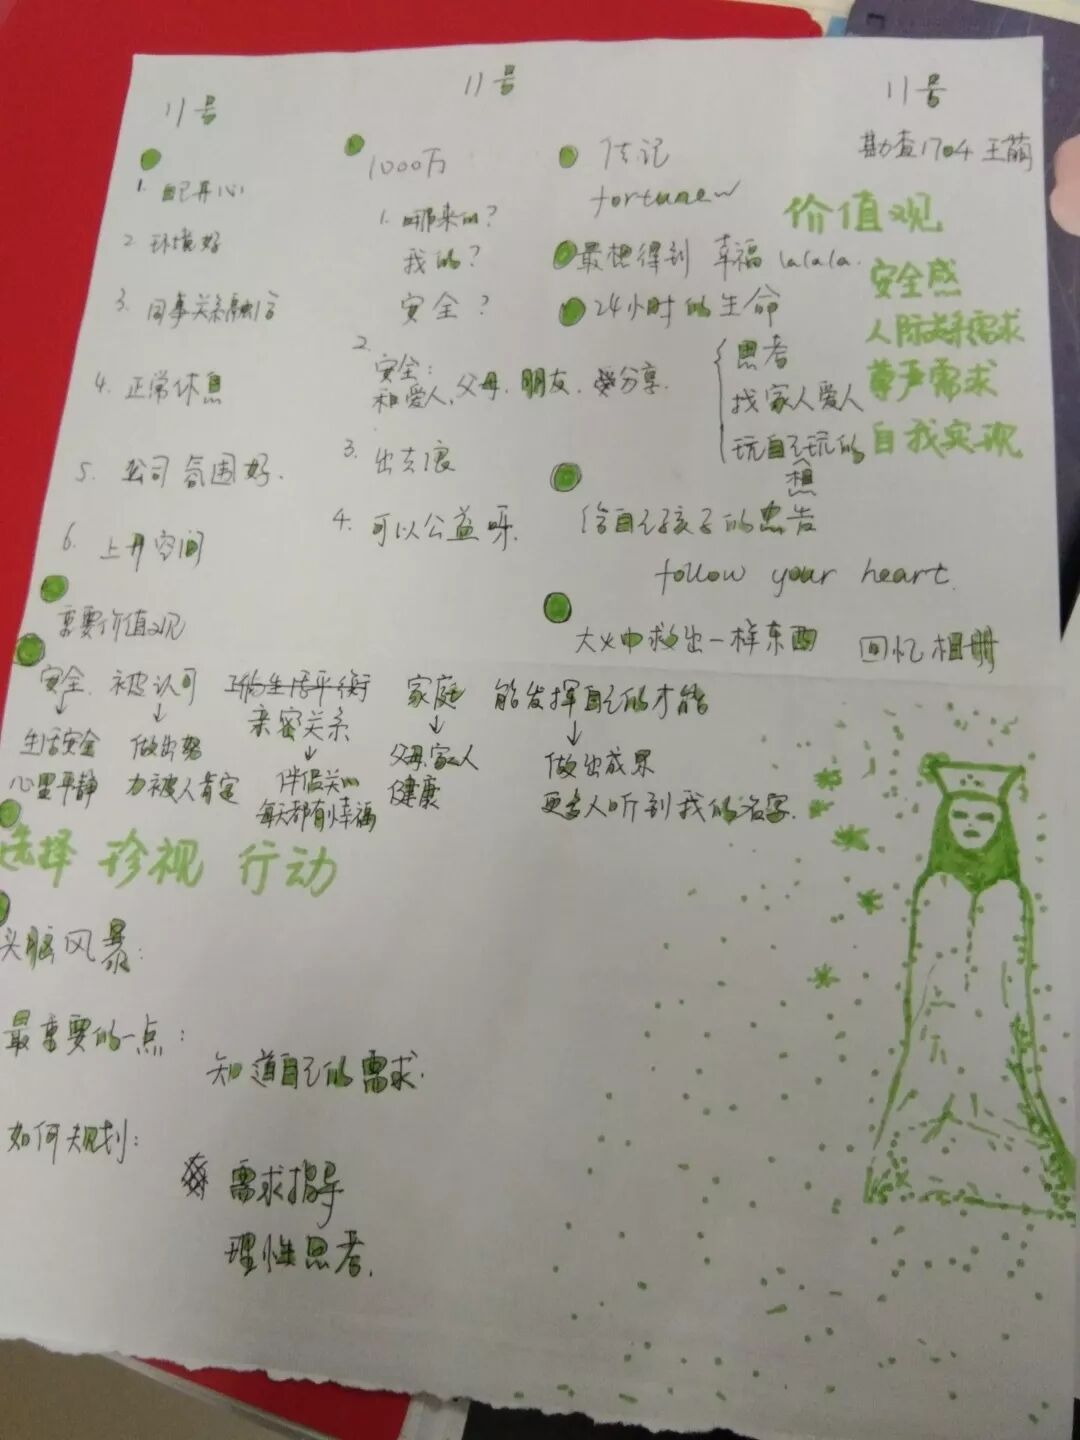 11号
11号
11号
勘查1704 王萌
1. 自己开心
2. 环境好
3. 同事关系融洽
4. 正常休息
5. 公司氛围好.
6. 上升空间
1000万
1. 哪来的?
我的?
安全?
2. 安全:
和爱人,父母,朋友.分享.
3. 出去浪
4. 可以公益呀.
传记
fortunew
最想得到 幸福 lalala.
24小时的生命
思考
找家人爱人
玩自己玩的
想
给自己孩子的忠告
follow your heart.
大火中救出一样东西 回忆相册
价值观
安全感
人际关系需求
尊严需求
自我实现
重要价值观
安全. 被认可 工作生活平衡 家庭 能发挥自己的才能
亲密关系
生活安全 做出努 父母.家人 做出成果
心里平静 力被人肯定 伴侣关心 健康 更多人听到我的名字.
每天都有幸福
选择 珍视 行动
头脑风暴:
最重要的一点:
知道自己的需求.
如何规划:
需求指导
理性思考.